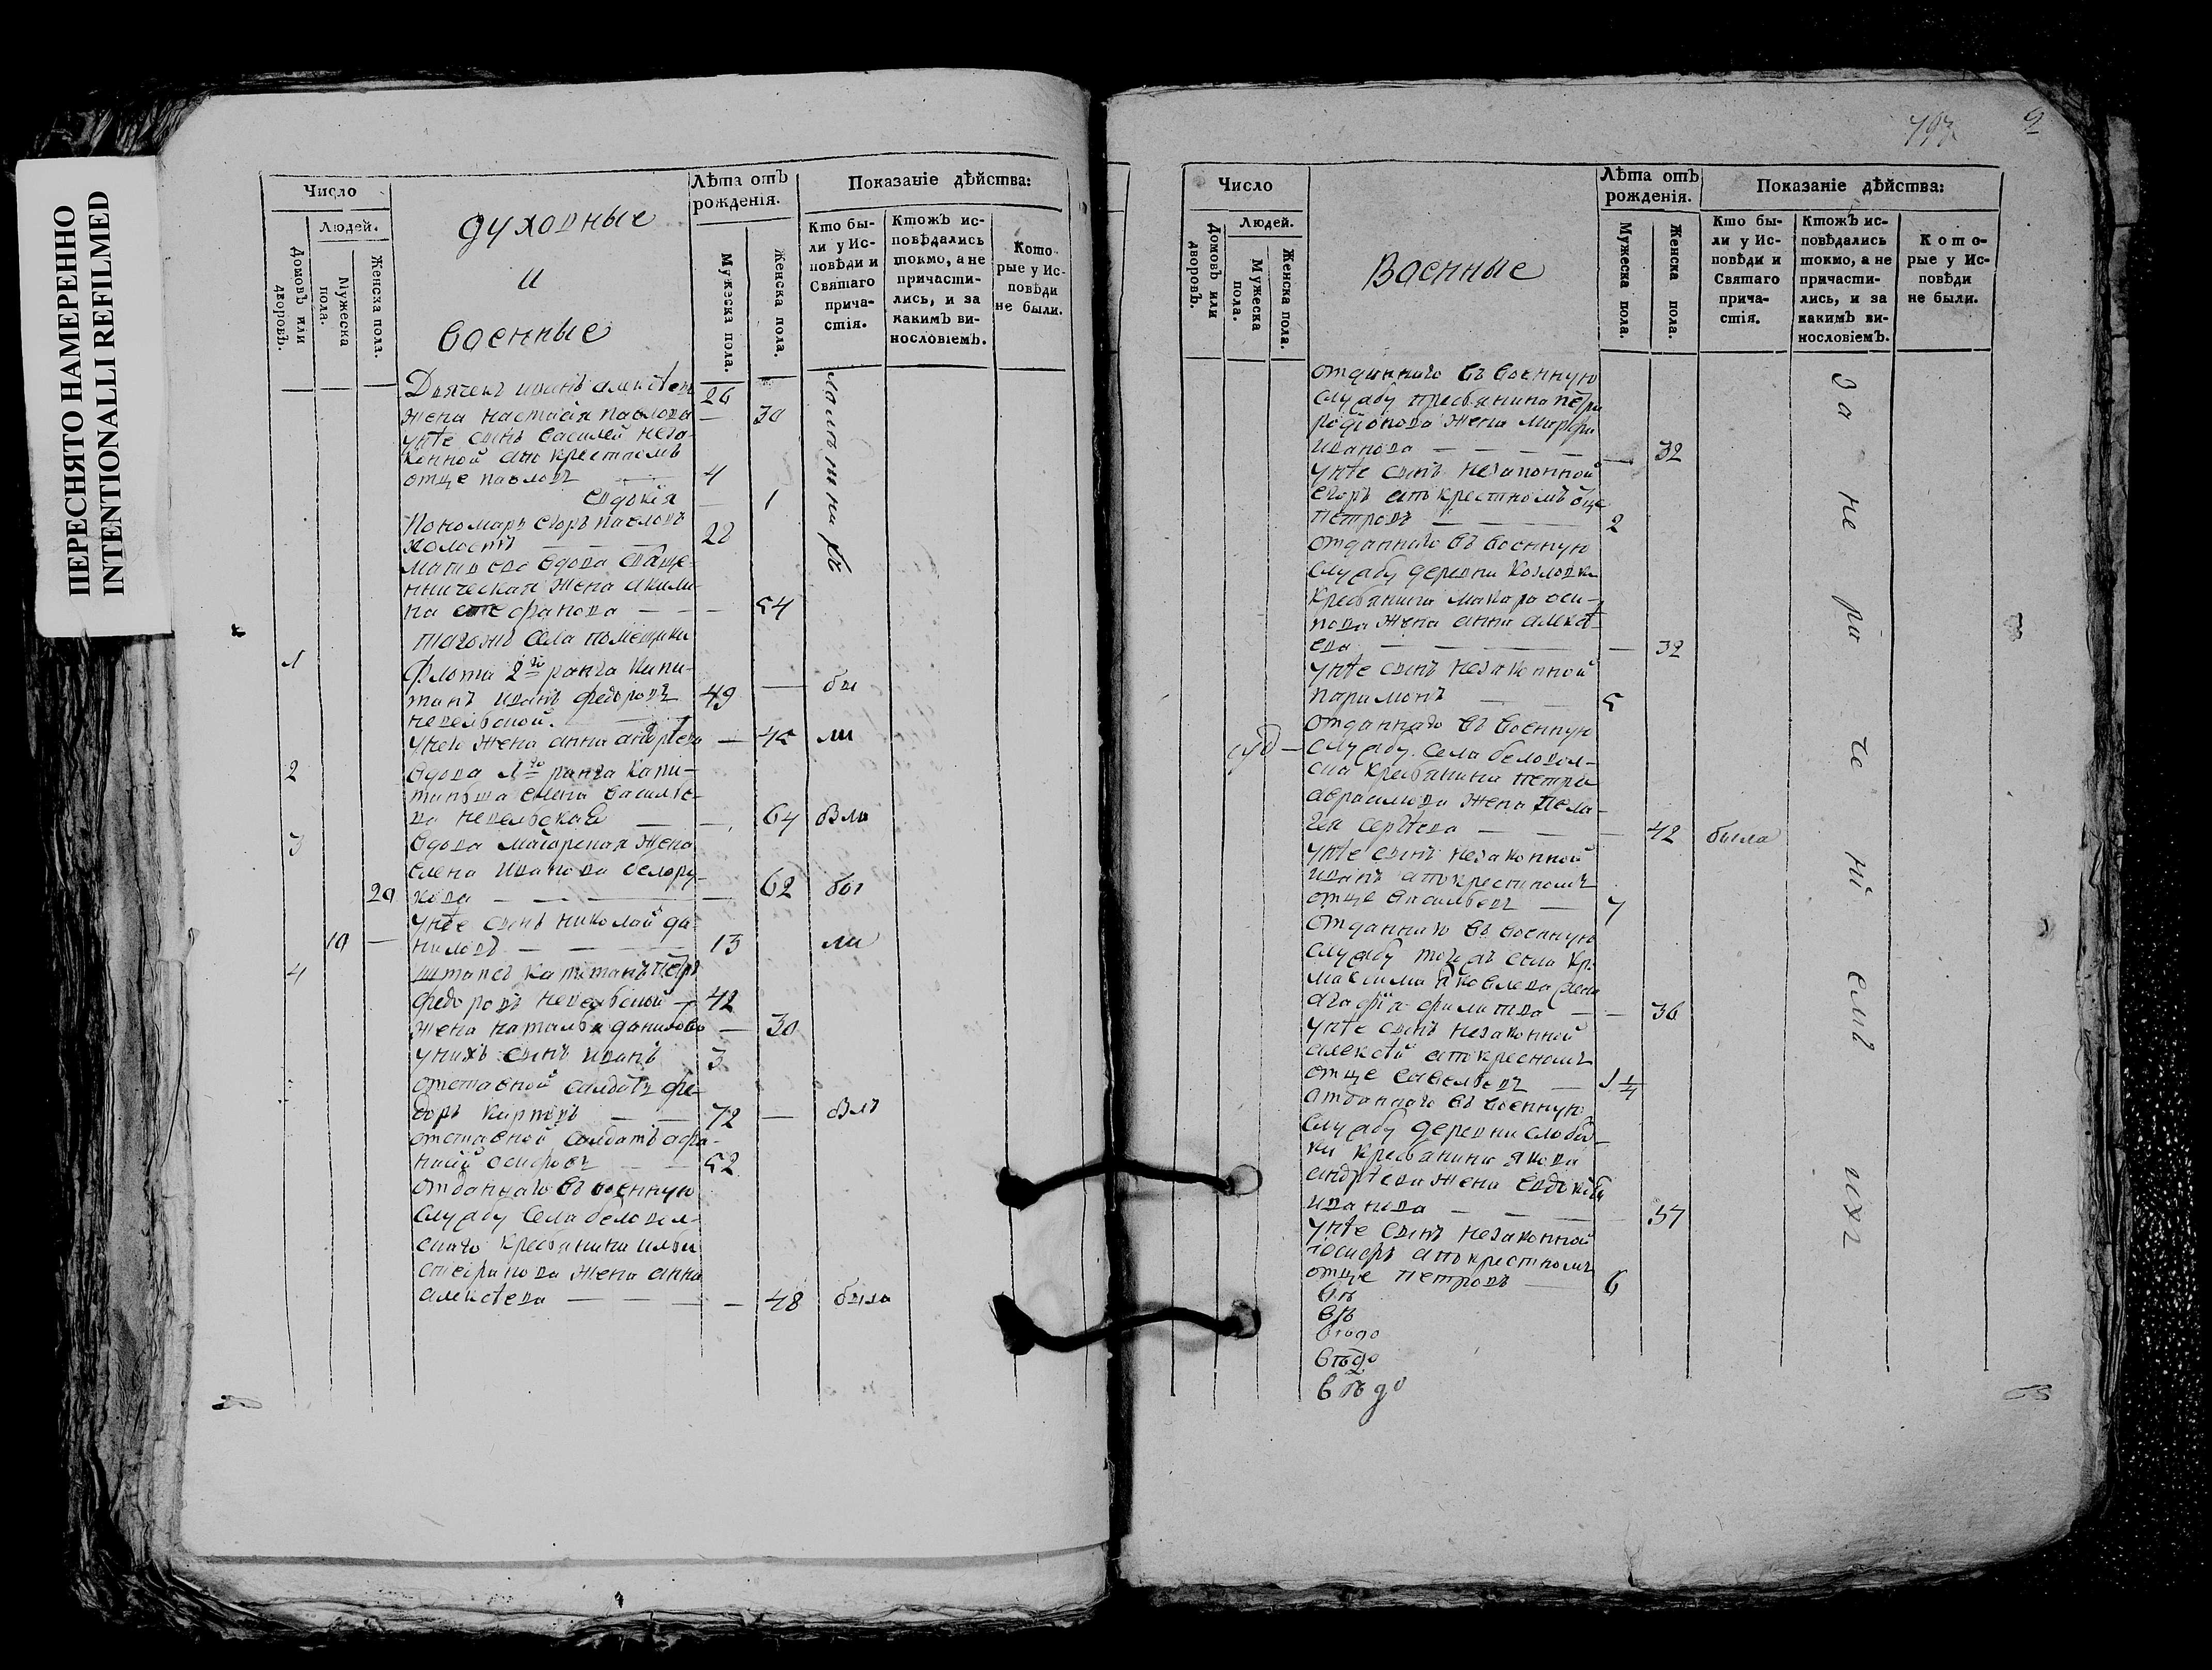 ПЕРЕСНЯТО НАМЕРЕННО
INTENTIONALLI REFILMED
Число
Людей.
Домовъ или дворовъ.
Мужеска пола.
Женска пола.
духовные
и
военные
Лѣта отъ рожденія.
Мужеска пола.
Женска пола.
Показаніе дѣйства:
Кто бы-
ли у Ис-
повѣди и
Святаго
прича-
стія.
Ктожъ ис-
повѣдались
токмо, а не
причасти-
лись, и за
какимъ ви-
нословіемъ.
Кото-
рые у Ис-
повѣди
не были.
Дьячекъ иванъ алексѣевъ 26
жена настасія павлова — 30
унѣе сынъ василей неза-
конной апо крестномъ
отце павловъ — 4
евдокія — 1
Пономарь егоръ павловъ
холостъ — — — 22
мать ево вдова свяще-
нническая жена акили-
на стефанова — — — 54
тогожъ села помещики
1 Флота 2го ранга капи-
танъ иванъ федоровъ 49 — бы
невельской.
унего жена анна андрѣева — 45 ли
2 вдова 1го ранга капи-
танша елена василье-
ва невельская — — 64 была
3 вдова маіорская жена
елена иванова белору-
20 кова — — — — 62 бы
унѣе сынъ николай да-
10 — ниловъ — — — 13 ли
4 штапсъ капитанъ петръ
федоровъ невельской — 42
жена наталья данилова — 30
унихъ сынъ иванъ 3
отставной салдатъ фе-
доръ карповъ — — 72 — былъ
отставной салдатъ афа-
насій осиповъ — — 52
отданнаго въ военную
службу села беловол-
скаго крестьянина ильи
стефанова жена анна
алексѣева — — — — 48 была
2
Число
Людей.
Домовъ или дворовъ.
Мужеска пола.
Женска пола.
Военные
Лѣта отъ рожденія.
Мужеска пола.
Женска пола.
Показаніе дѣйства:
Кто бы-
ли у Ис-
повѣди и
Святаго
прича-
стія.
Ктожъ ис-
повѣдались
токмо, а не
причасти-
лись, и за
какимъ ви-
нословіемъ.
Кото-
рые у Ис-
повѣди
не были.
отданнаго въ военную
службу кресьянина петра
родіонова жена марфа
иванова — — — — 32
унѣе сынъ незаконной
егоръ апо крестномъ отце
петровъ — — — 2
отданнаго въ военную
службу деревни козловки
кресьянина макара оси-
пова жена анна алексѣ-
ева — — — — 32
унѣе сынъ незаконной
парамонъ — — 5
отданнаго въ военную
службу села беловол-
скаго кресьянина петра
аврамова жена пела-
гея сергѣева — — — 42 была
унѣе сынъ незаконной
иванъ апо крестномъ
отце васильевъ — 7
отданнаго въ военную
службу тогожъ села кр:
максима яковлева жена
агафія филипова — — 36
унѣе сынъ незаконной
алексѣй апо кресномъ
отце савельевъ — 1 1/4
отданнаго въ военную
службу деревни слобод-
ки кресьянина якова
андрѣева жена евдокія
иванова — — — 37
унѣе сынъ незаконной
іосифъ апо крестномъ
отце петровъ — 6